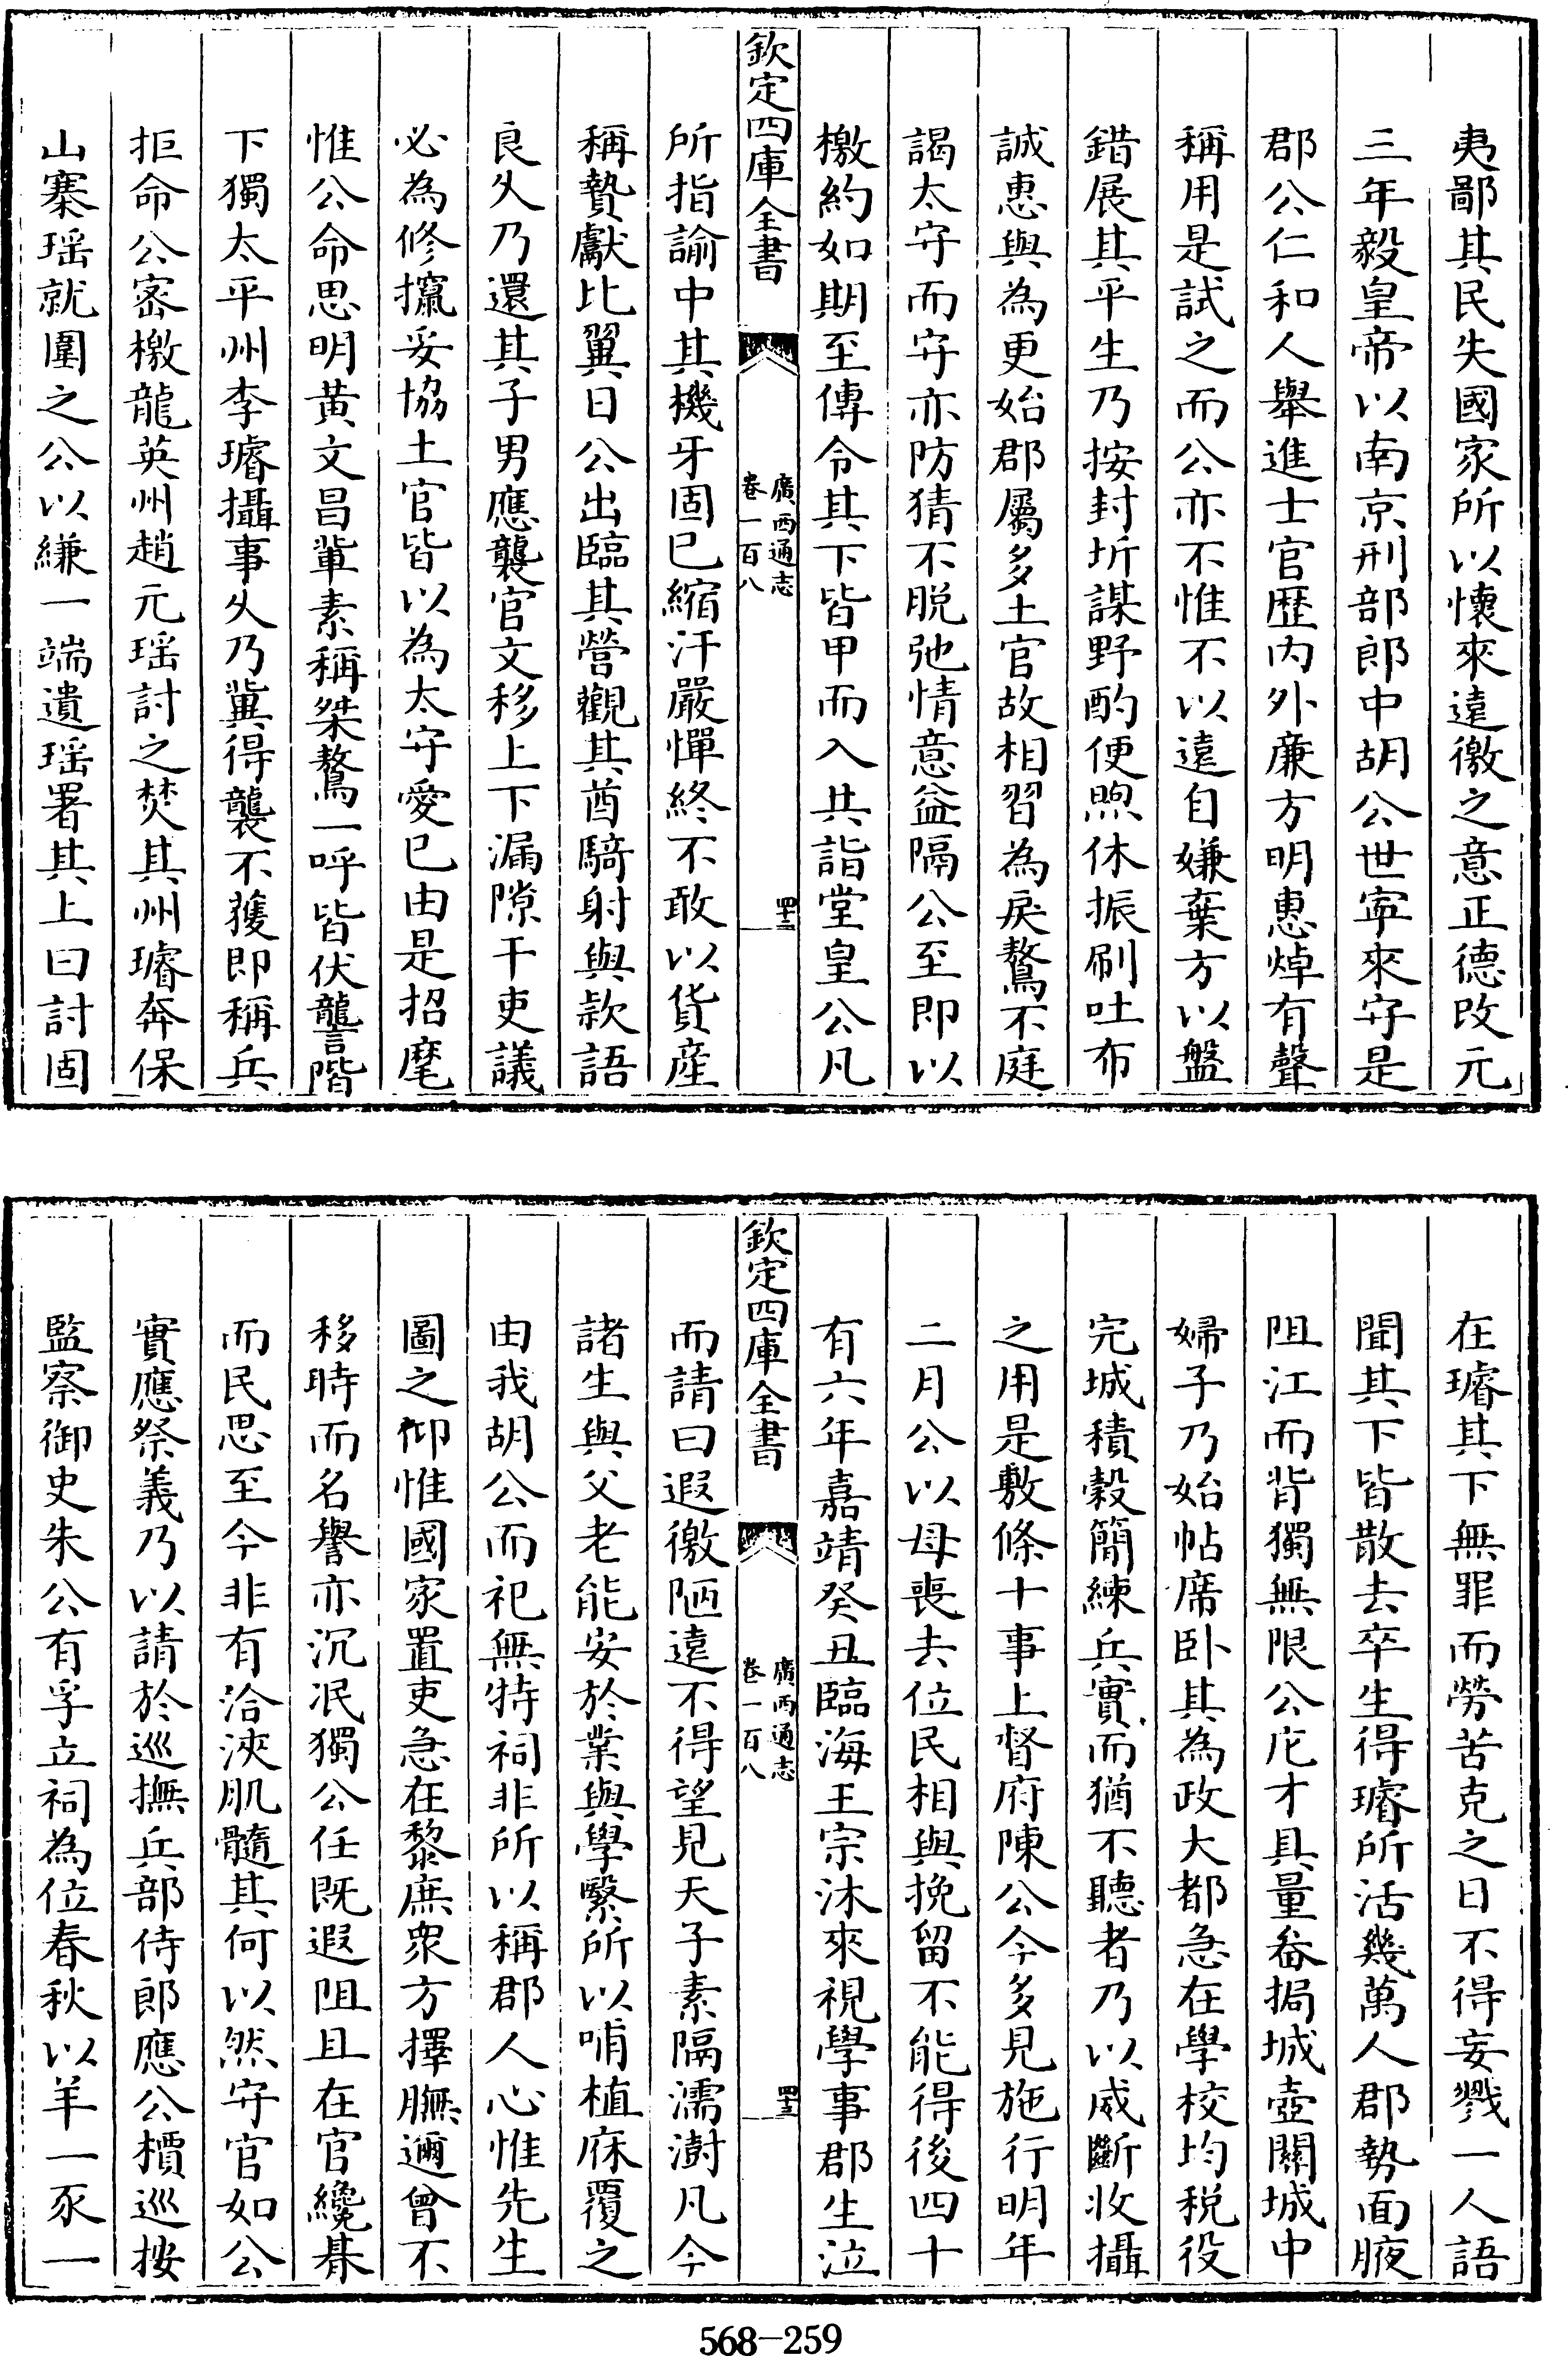 夷鄙其民失國家所以懷來遠徼之意正德改元
三年毅皇帝以南京刑部郎中胡公世寧來守是
郡公仁和人舉進士官歴内外廉方明惠焯有聲
稱用是試之而公亦不惟不以遠自嫌棄方以盤
錯展其平生乃按封圻謀野酌便煦休振刷吐布
誠惠與為更始郡屬多土官故相習為戾驁不庭
謁太守而守亦防猜不脱弛情意益隔公至即以
檄約如期至傳令其下皆甲而入其詣堂皇公凡
欽定四庫全書
廣西通志
卷一百八
四十三
所指諭中其機牙固已縮汗嚴憚終不敢以貨産
稱贄獻比翼日公出臨其營觀其酋騎射與款語
良久乃還其子男應襲官文移上下漏隙干吏議
必為修攛妥協土官皆以為太守愛已由是招麾
惟公命思明黄文昌輩素稱桀驁一呼皆伏讋階
下獨太平州李璿攝事久乃冀得襲不獲即稱兵
拒命公密檄龍英州趙元瑶討之焚其州璿奔保
山寨瑶就圍之公以縑一端遺瑶署其上曰討固
在璿其下無罪而勞苦克之日不得妄戮一人語
聞其下皆散去卒生得璿所活幾萬人郡勢面腋
阻江而背獨無限公庀才具量畚挶城壺關城中
婦子乃始帖席卧其為政大都急在學校均税役
完城積穀簡練兵實而猶不聽者乃以威斷收攝
之用是敷條十事上督府陳公今多見施行明年
二月公以母喪去位民相與挽留不能得後四十
有六年嘉靖癸丑臨海王宗沐來視學事郡生泣
欽定四庫全書
廣西通志
卷一百八
四十三
而請曰遐徼陋遠不得望見天子素隔濡澍凡今
諸生與父老能安於業與學繄所以哺植庥覆之
由我胡公而祀無特祠非所以稱郡人心惟先生
圖之仰惟國家置吏急在黎庶衆方擇膴邇曾不
移時而名譽亦沉泯獨公任既遐阻且在官纔朞
而民思至今非有洽浹肌髓其何以然守官如公
實應祭義乃以請於巡撫兵部侍郎應公檟巡按
監察御史朱公有孚立祠為位春秋以羊一豕一
568-259